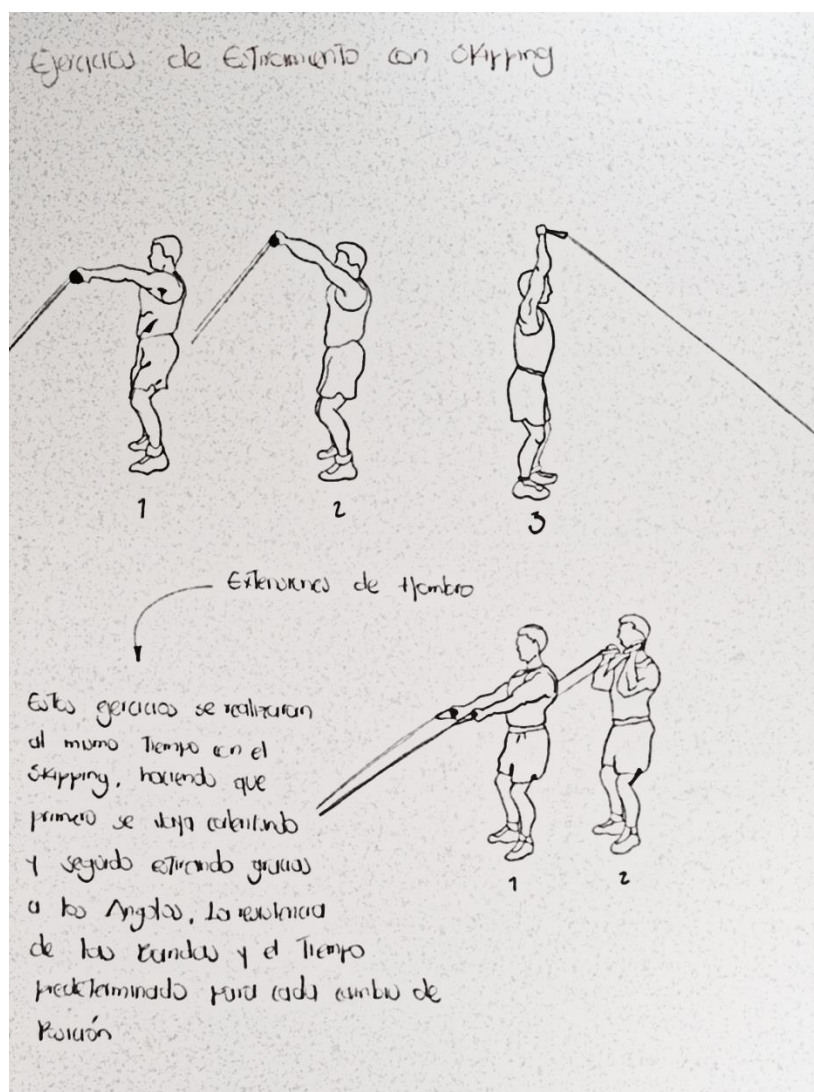 Ejercicios de Estiramiento con Skipping
1
2
3
Extensiones de Hombro
Estos ejercicios se realizaran
al mismo Tiempo con el
Skipping, haciendo que
primero se vaya calentando
y seguido estirando gracias
a los Angolos, La resistencia
de las Bandas y el Tiempo
predeterminado para cada cambio de
Posición
1
2